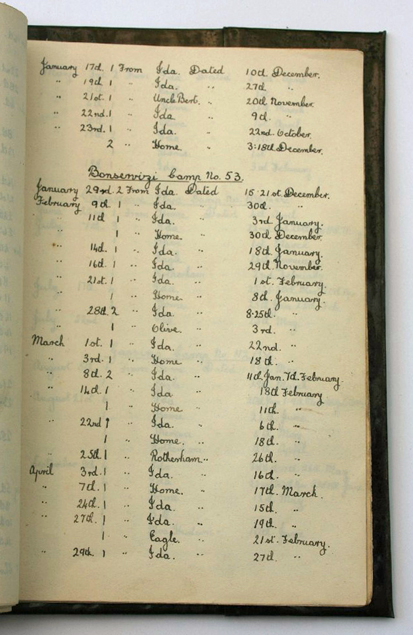 January 17th. 1 From Ida. Dated 10th December.
" 19th. 1 " Ida. " 27th "
" 21st. 1 " Uncle Bert. " 20th November.
" 22nd. 1 " Ida. " 9th "
" 23rd. 1 " Ida. " 22nd October.
2 " Home. " 3:18th December.
Camp No. 53.
January 29rd. 2 From Ida Dated 15. 21st December.
February 9th. 1 " Ida " 30th "
" 11th. 1 " Ida. " 3rd January.
1 " Home. " 30th December.
" 14th. 1 " Ida. " 18th January.
" 16th. 1 " Ida. " 29th November.
" 21st. 1 " Ida. " 1st February.
" Home " 8th January.
" 28th 2 " Ida. " 8-25th "
1 " Olive. " 3rd "
March 1st. 1 " Ida. " 22nd "
" 3rd. 1 " Home " 18th "
" 8th. 2 " Ida. 11th Jan. 7th February.
" 14th. 1 " Ida. " 18th February
1 " Home " 11th "
" 22nd 1 " Ida. " 6th "
1 " Home. " 18th "
" 25th 1 " Rotherham " 26th "
April 3rd. 1 " Ida. " 16th "
" 7th. 1 " Home. " 17th March.
" 24th. 1 " Ida. " 15th "
" 27th. 1 " Ida. " 19th "
1 " Eagle. " 21st. February.
" 29th. 1 " Ida. " 27th "